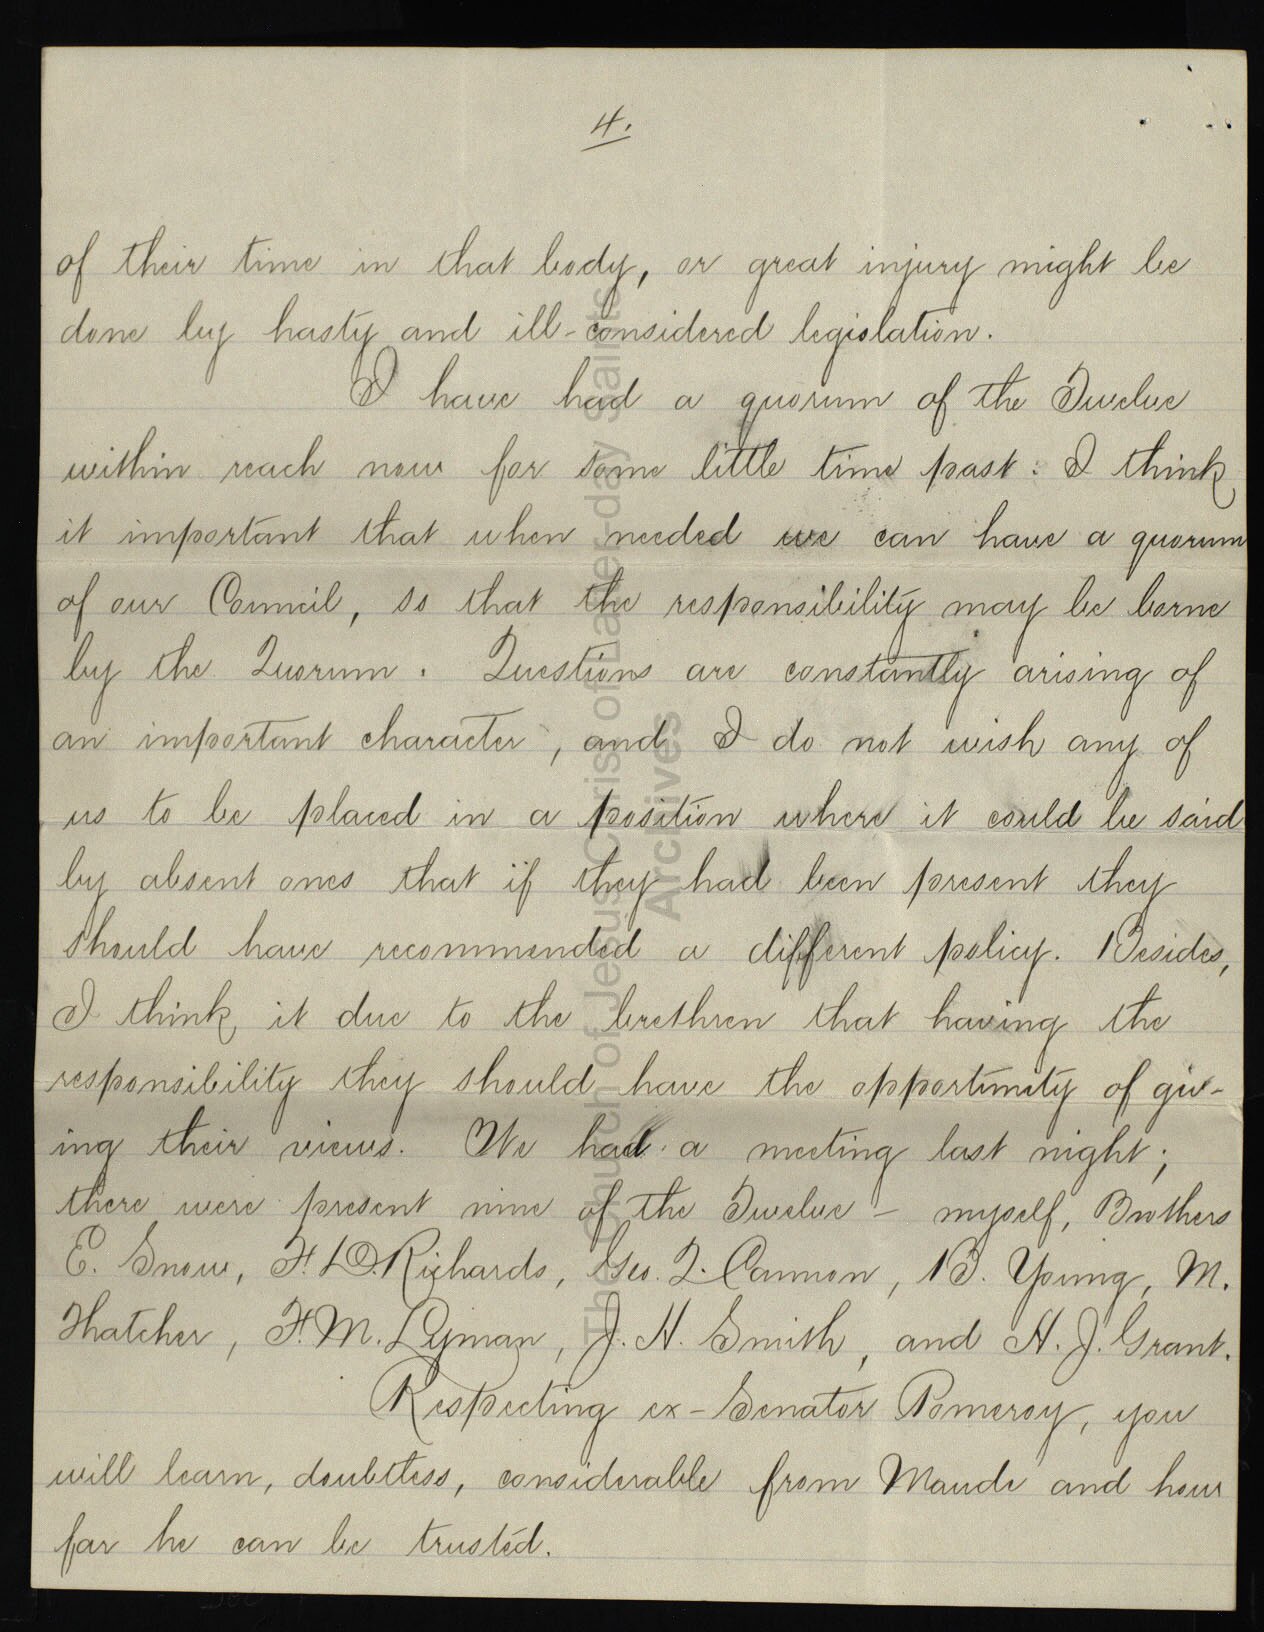 4.
of their time in that body, or great injury might be
done by hasty and ill-considered legislation.
I have had a quorum of the Twelve
within reach now for some little time past: I think
it important that when needed we can have a quorum
of our Council, so that the responsibility may be borne
by the Quorum. Questions are constantly arising of
an important character, and I do not wish any of
us to be placed in a position where it could be said
by absent ones that if they had been present they
should have recommended a different policy. Besides,
I think it due to the brethren that having the
responsibility they should have the opportunity of giv-
ing their views. We had a meeting last night;
there were present nine of the Twelve – myself, Brothers
E. Snow, F. D. Richards, Geo. Q. Cannon, B. Young, M.
Thatcher, F. M. Lyman, J. H. Smith, and H. J. Grant.
Respecting ex-Senator Pomeroy, you
will learn, doubtless, considerable from Maude and how
far he can be trusted.
The Church of Jesus Christ of Latter-day Saints
Archives